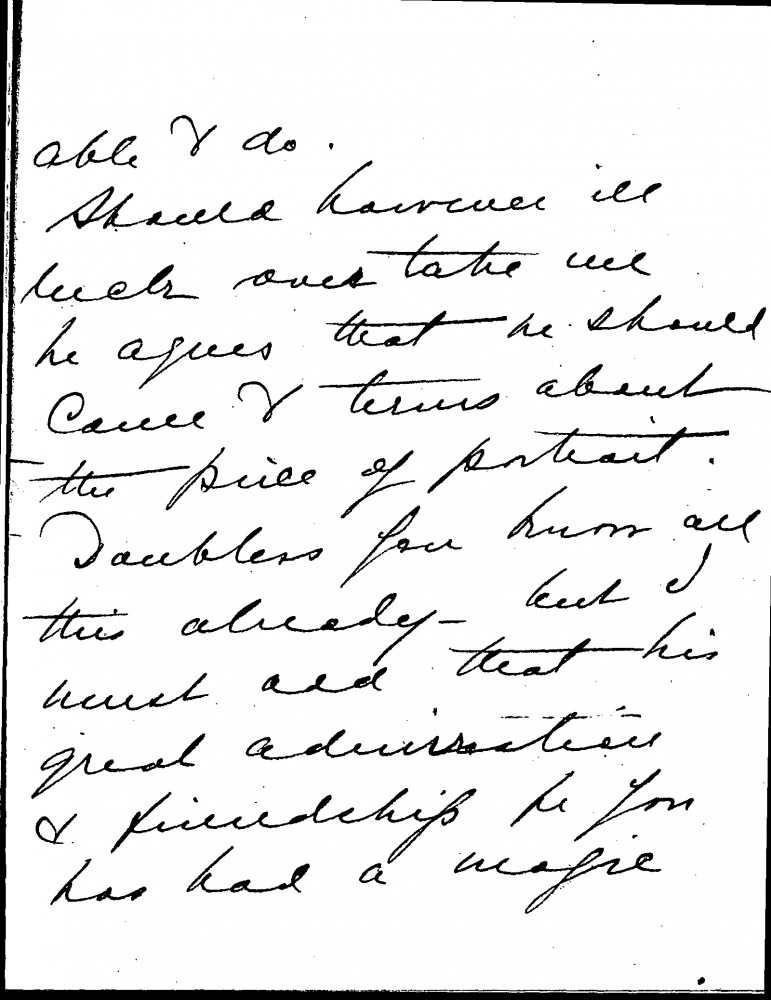 able to do.
Should however ill
luck over take me
he agrees that he should
Come to terms about
the price of portrait.
Doubless you know all
this already - but I
must add that his
great admiration
& friendship for you
has had a magic